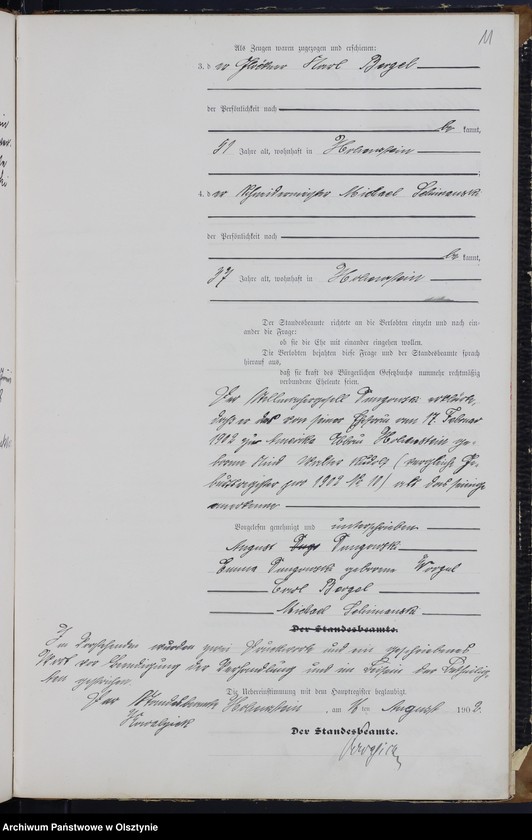 11
Als Zeugen waren zugezogen und erschienen:
3. d er Karl Bergel
der Persönlichkeit nach
be kannt,
Jahre alt, wohnhaft in Hohenstein
4. d er Schneidermeister Michael
der Persönlichkeit nach
be kannt,
37 Jahre alt, wohnhaft in Hohenstein
Der Standesbeamte richtete an die Verlobten einzeln und nach ein-
ander die Frage:
ob sie die Ehe mit einander eingehen wollen.
Die Verlobten bejahten diese Frage und der Standesbeamte sprach
hierauf aus,
daß sie kraft des Bürgerlichen Gesetzbuchs nunmehr rechtmäßig
verbundene Eheleute seien.
Der erklärte,
daß er das von seiner Ehefrau am 17. Februar
1902 zu Hohenstein ge-
borene Kind (vergleiche Ge-
burtsregister pro 1902 № 10) als das seinige
anerkenne
Vorgelesen, genehmigt und unterschrieben
August
Emma geborene
Carl Bergel
Michael
Der Standesbeamte.
Im Vorstehenden wurden zwei Druckworte und ein geschriebenes
Wort vor Beendigung der Verhandlung und im Beisein der Betheilig-
ten gestrichen.
Der Standesbeamte
Die Uebereinstimmung mit dem Hauptregister beglaubigt.
Hohenstein, am ten August 1902.
Der Standesbeamte.
Archiwum Państwowe w Olsztynie